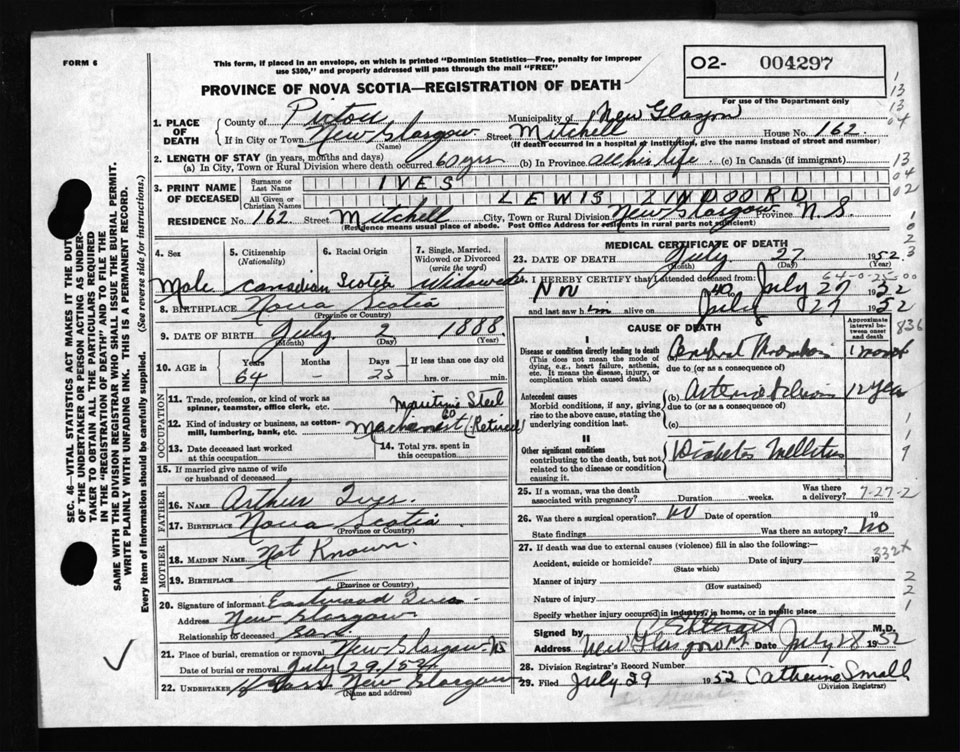 FORM 6
This form, if placed in an envelope, on which is printed "Dominion Statistics—Free, penalty for improper
use $300," and properly addressed will pass through the mail "FREE"
O2- 004297
For use of the Department only
PROVINCE OF NOVA SCOTIA—REGISTRATION OF DEATH
1. PLACE OF DEATH
County of Pictou Municipality of New Glasgow
If in City or Town New Glasgow Street Mitchell House No. 162
(Name) (If death occurred in a hospital or institution, give the name instead of street and number)
2. LENGTH OF STAY (in years, months and days)
(a) In City, Town or Rural Division where death occurred 60 yrs (b) In Province all his life (c) In Canada (if immigrant)
3. PRINT NAME OF DECEASED
Surname or Last Name IVES
All Given or Christian Names LEWIS
RESIDENCE No. 162 Street Mitchell City, Town or Rural Division New Glasgow Province N.S.
(Residence means usual place of abode. Post Office Address for residents in rural parts not sufficient)
4. Sex
Male
5. Citizenship (Nationality)
Canadian
6. Racial Origin
Scotia
7. Single, Married, Widowed or Divorced (write the word)
Widowed
8. BIRTHPLACE Nova Scotia
(Province or Country)
9. DATE OF BIRTH July 2 1888
(Month) (Day) (Year)
10. AGE in
Years 64
Months –
Days 25
If less than one day old
hrs. or min.
OCCUPATION
11. Trade, profession, or kind of work as
spinner, teamster, office clerk, etc. Maritime Steel Co
12. Kind of industry or business, as cotton-
mill, lumbering, bank, etc. Machanist (Retired)
13. Date deceased last worked
at this occupation
14. Total yrs. spent in
this occupation
15. If married give name of wife
or husband of deceased
FATHER
16. NAME Arthur Ives.
17. BIRTHPLACE Nova Scotia
(Province or Country)
MOTHER
18. MAIDEN NAME Not Known.
19. BIRTHPLACE
(Province or Country)
20. Signature of informant Eastwood Ives.
Address New Glasgow
Relationship to deceased Son
21. Place of burial, cremation or removal New Glasgow NS
Date of burial or removal July 29, 1952
22. UNDERTAKER New Glasgow
(Name and address)
MEDICAL CERTIFICATE OF DEATH
23. DATE OF DEATH July 27 1952
(Month) (Day) (Year)
64-0-25-00
24. I HEREBY CERTIFY that I attended deceased from:
Nov to July 27 1952
and last saw him alive on July 27 1952
CAUSE OF DEATH
Approximate interval between onset and death
836
I
Disease or condition directly leading to death
(This does not mean the mode of
dying, e.g., heart failure, asthenia,
etc. It means the disease, injury, or
complication which caused death.)
Cerebral Thrombosis 1 month
due to (or as a consequence of)
Antecedent causes
Morbid conditions, if any, giving
rise to the above cause, stating the
underlying condition last.
(b) 12 years
due to (or as a consequence of)
(c)
II
Other significant conditions
contributing to the death, but not
related to the disease or condition
causing it.
Diabetes Mellitus
25. If a woman, was the death
associated with pregnancy? Duration weeks. Was there a delivery?
7-27-2
26. Was there a surgical operation? NO Date of operation 19
State findings Was there an autopsy? No
27. If death was due to external causes (violence) fill in also the following:
332X
Accident, suicide or homicide? Date of injury 19
(State which)
Manner of injury
(How sustained)
Nature of injury
Specify whether injury occurred in industry, in home, or in public place
Signed by M.D.
Address New Glasgow Date July 28 1952
28. Division Registrar's Record Number
29. Filed July 29 1952 Catherine Small
(Division Registrar)
SEC. 46—VITAL STATISTICS ACT MAKES IT THE DUTY
OF THE UNDERTAKER OR PERSON ACTING AS UNDER-
TAKER TO OBTAIN ALL THE PARTICULARS REQUIRED
IN THE "REGISTRATION OF DEATH" AND TO FILE THE
SAME WITH THE DIVISION REGISTRAR WHO SHALL ISSUE THE BURIAL PERMIT.
WRITE PLAINLY WITH UNFADING INK. THIS IS A PERMANENT RECORD.
Every item of information should be carefully supplied. (See reverse side for instructions.)